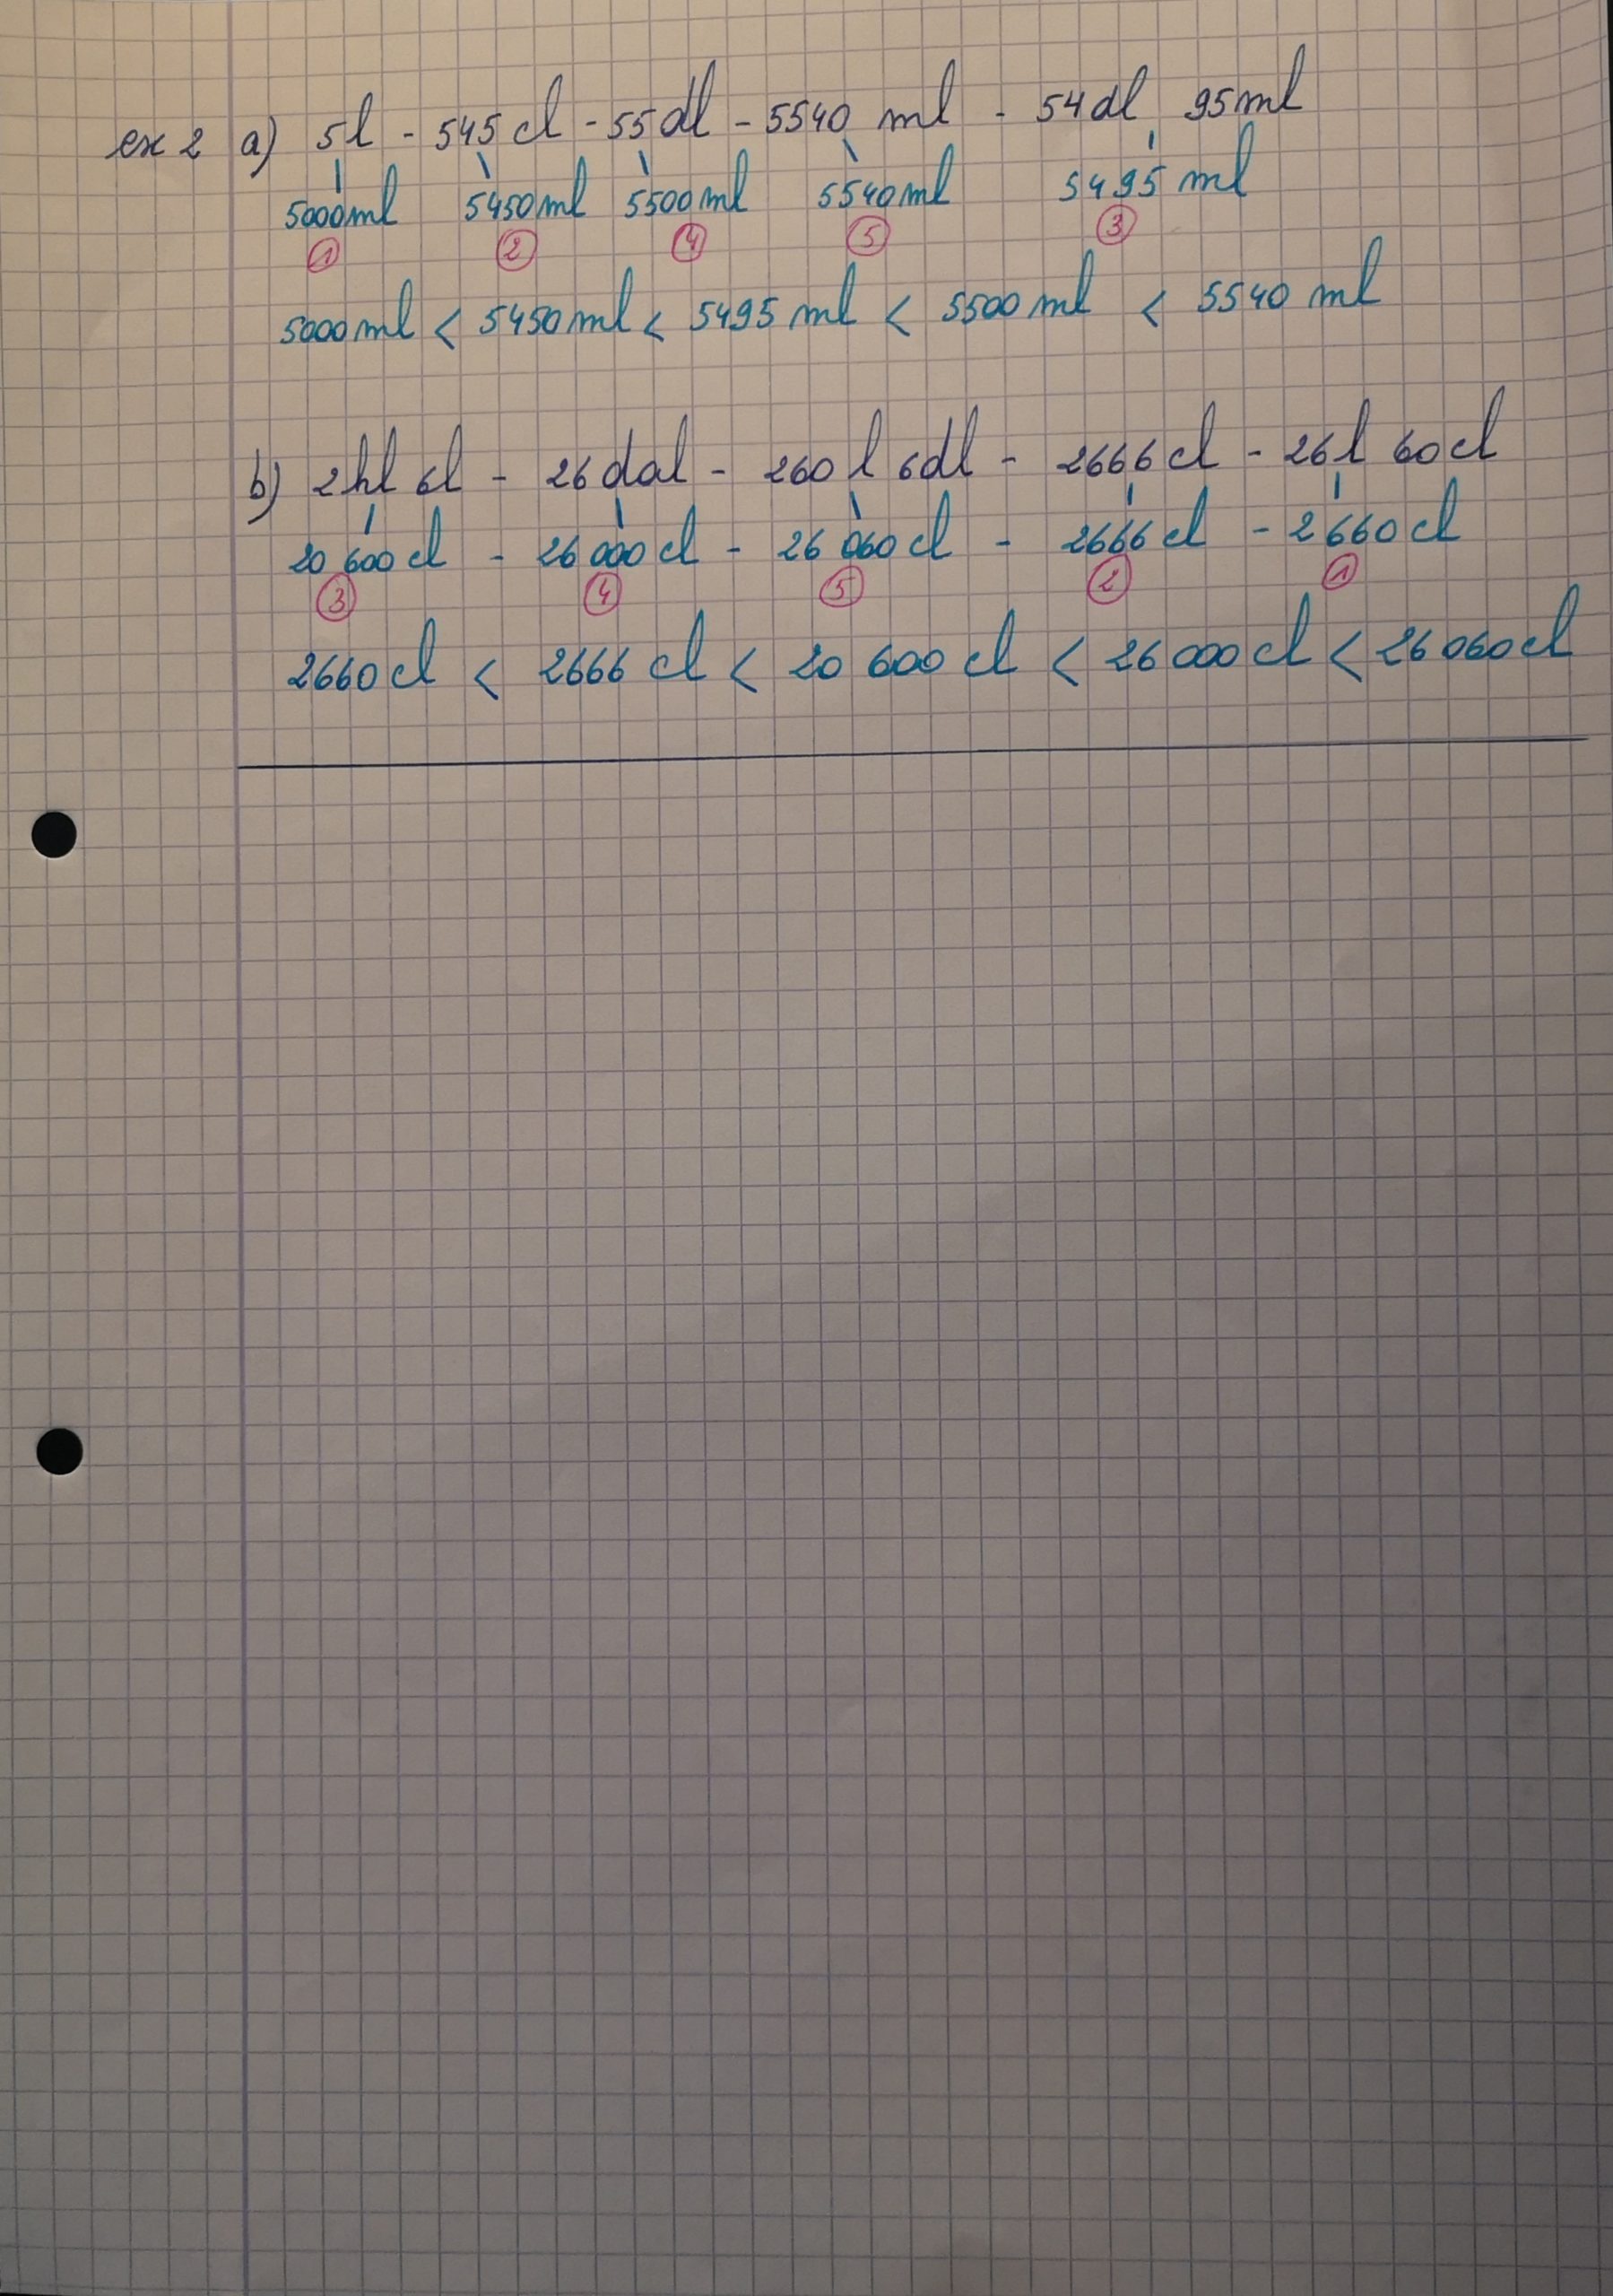 ex 2 a) 5l - 545 cl - 55 dl - 5540 ml - 54 dl 95 ml
5000 ml 5450 ml 5500 ml 5540 ml 5495 ml
1 2 4 5 3
5000 ml < 5450 ml < 5495 ml < 5500 ml < 5540 ml
b) 2 hl 6l - 26 dal - 260 l 6 dl - 2666 cl - 26 l 60 cl
20 600 cl - 26 000 cl - 26 060 cl - 2666 cl - 2 660 cl
3 4 5 2 1
2660 cl < 2666 cl < 20 600 cl < 26 000 cl < 26 060 cl